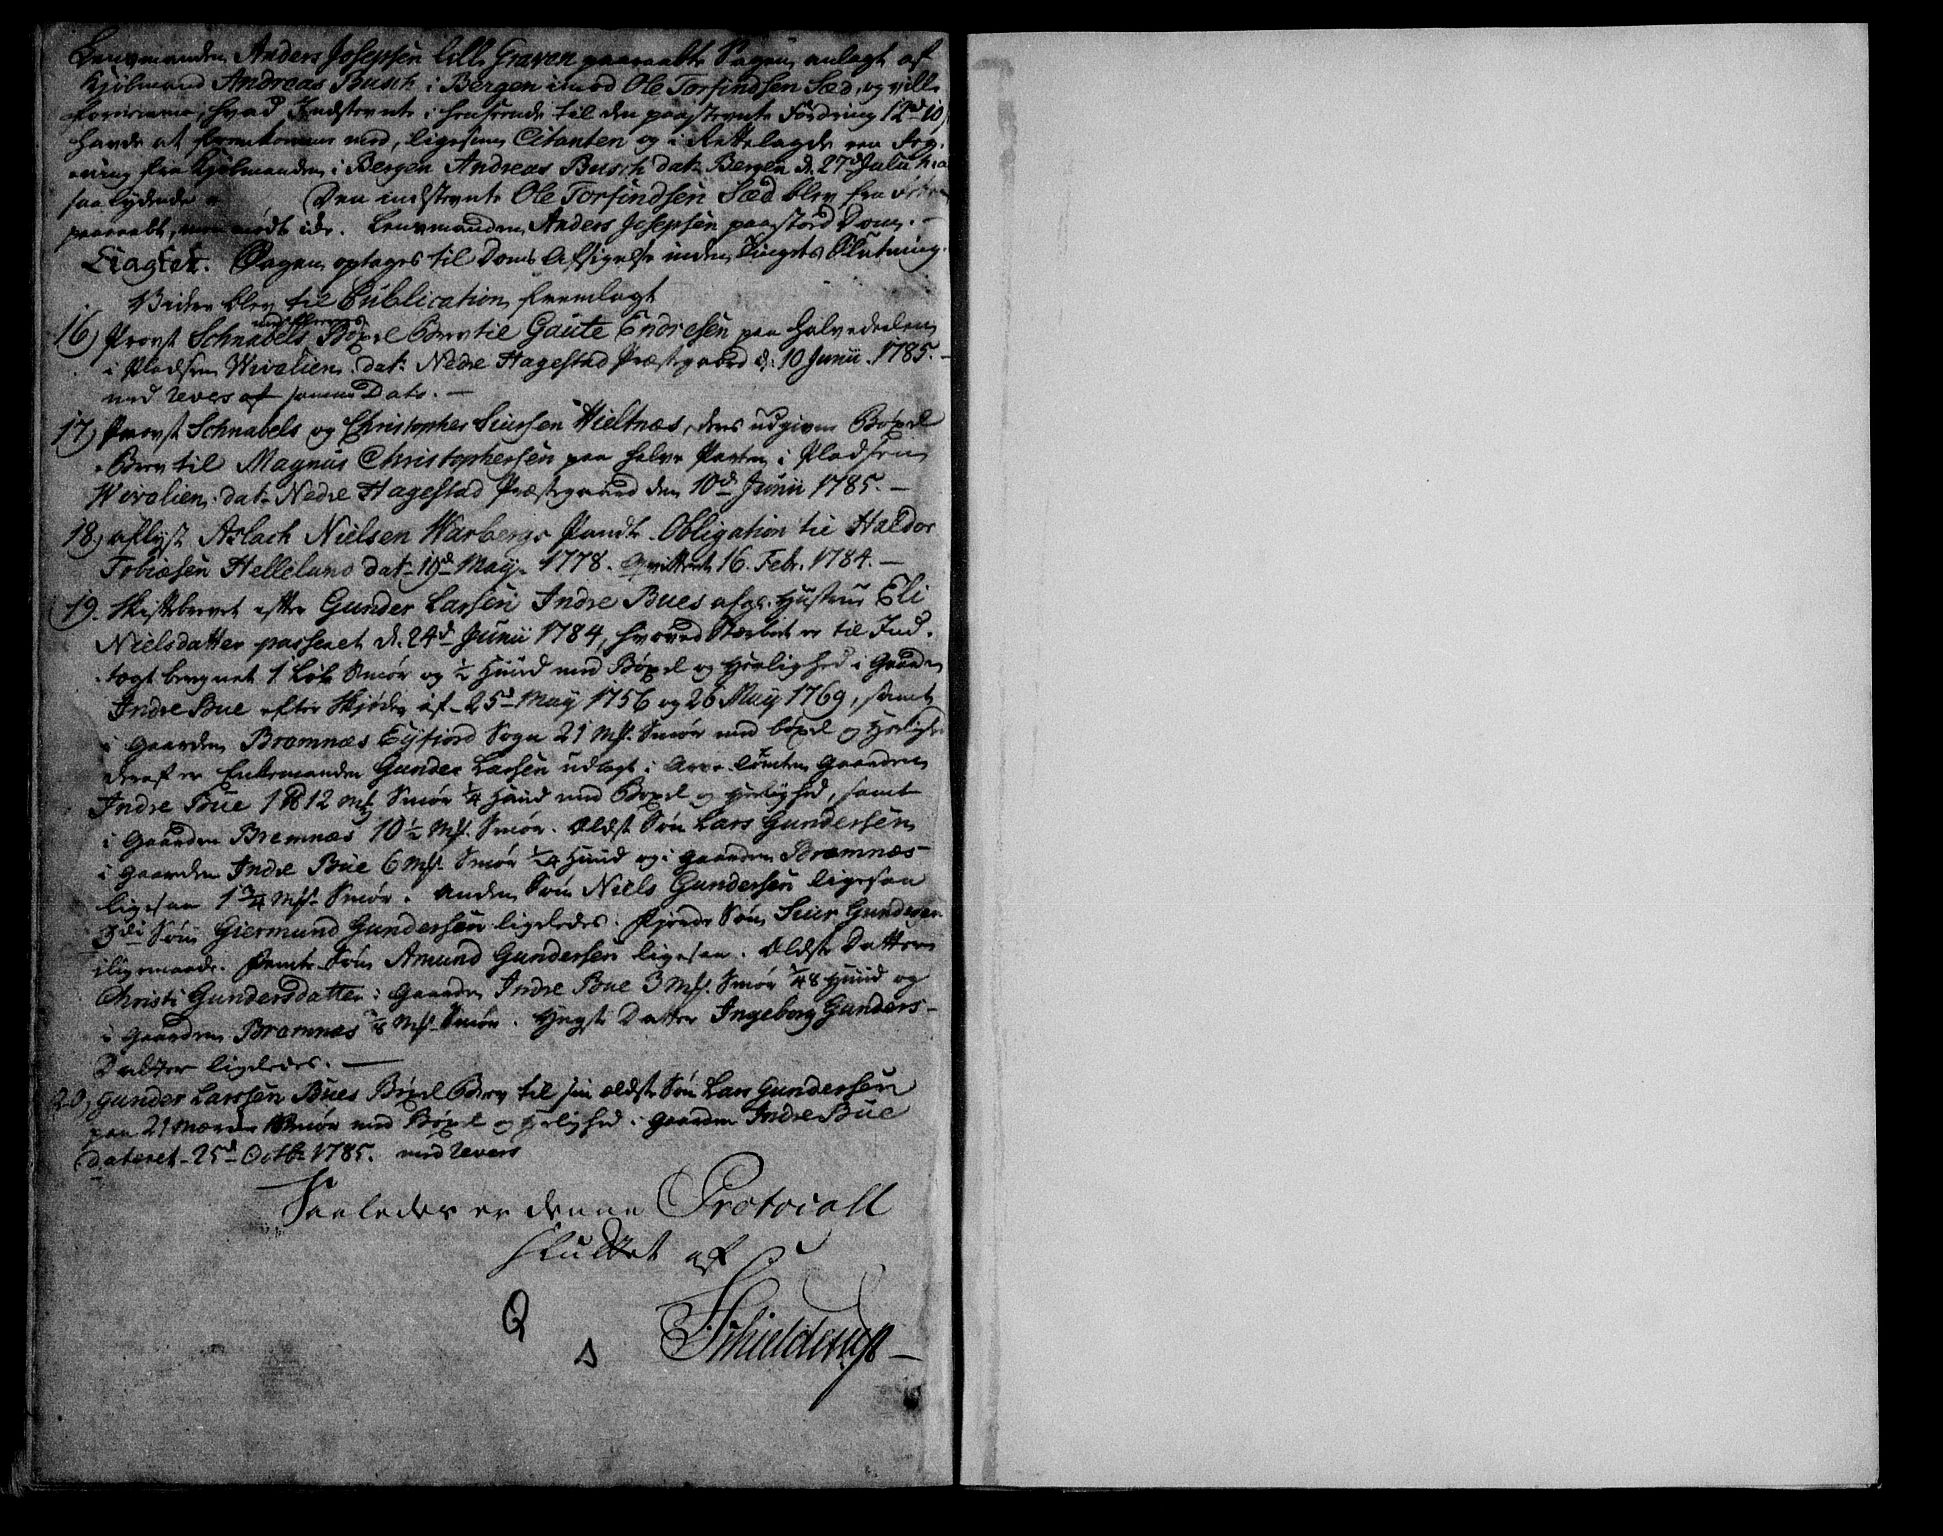 Lensmanden Anders Josephsen lille Graven paaraabte Sagen anlagt af
Kjøbmand Andreas Busch i Bergen imod Ole Torfindsen Sæd, og vilde
fornemme, hvad Indstevnte i henseende til den paastevnte Fordring 12rd
havde at fremkomme med, ligesom Citanten og i Rettelagde een Reg-
ning fra Kjøbmanden i Bergen Andreas Busch dat. Bergen d. 27de Julii
saa lydende Den indstevnte Ole Torfindsen Sæd blev fra
paaraabt, men mødte ide. Lensmanden Anders Josephsen paastod Dom. -
Eragtet. Sagen optages til Doms Afsigelse inden Tingets Slutning.
Videre blev til Publication fremlagt
16) Provst Schnabels Bøxel Brev til Gaute Endresen paa halvedeelen
i Pladsen Wivelien, dat. Nedre Hagestad Præstegaard d. 10 Junii 1785. -
med Revers af samme Dato. -
17) Provst Schnabels og Christopher Siursen Hieltnæs, deres udgivne Bøxel
Brev til Magnus Christophersen paa halve Parten i Pladsen
Wivelien, dat. Nedre Hagestad Præstegaard den 10de Junii 1785. -
18) aflyst Aslach Nielsen Warbergs Pandte Obligation til Haldor
Tobiæsen Helleland dat. 19de Maji 1778. Qvitteret 16. Febr. 1784. -
19. Skiftebrevet efter Gunder Larsen Indre Bues afg. Hustrue Eli
Nielsdatter passeret d. 24de Junii 1784, hvorved Stærboet er til Ind-
tægt beregnet 1 Løb Smør og ½ Huud med Bøxel og Herlighed i Gaarden
Indre Bue efter Skjøder af 25de Maij 1756 og 26 Maij 1769, samt
i Gaarden Bramnæs Eijfiord Sogn 21 Mk. Smør med bøxel og Herlighed
deraf er Enkemanden Gunder Larsen udlagt i Gaarden
Indre Bue 12 Mk. Smør ¼ Huud med Bøxel og Herlighed, samt
i Gaarden Bremnæs 10½ Mk. Smør. Ældste Søn Lars Gundersen
i Gaarden Indre Bue 6 Mk. Smør 1/24 Huud og i Gaarden Bramnæs
ligesaa 1¾ Mk. Smør. Anden Søn Niels Gundersen ligesaa
3die Søn Giermund Gundersen ligeledes. Fjerde Søn Siur Gundersen
iligemaade. Femte Søn Amund Gundersen ligesaa. Ældste Datter
Christi Gundersdatter i Gaarden Indre Bue 3 Mk. Smør 1/48 Huud og
i Gaarden Bramnæs 7/8 Mk. Smør. Yngste Datter Ingeborg Gunders-
Datter ligeledes. -
20) Gunder Larsen Bues Bøxel Brev til sin ældste Søn Lars Gundersen
paa 21 Mærker Smør med Bøxel og Herlighed i Gaarden Indre Bue
dateret 25de Octbr 1785. med Revers
Saaledes er denne Protocoll
sluttet af
Schielderup